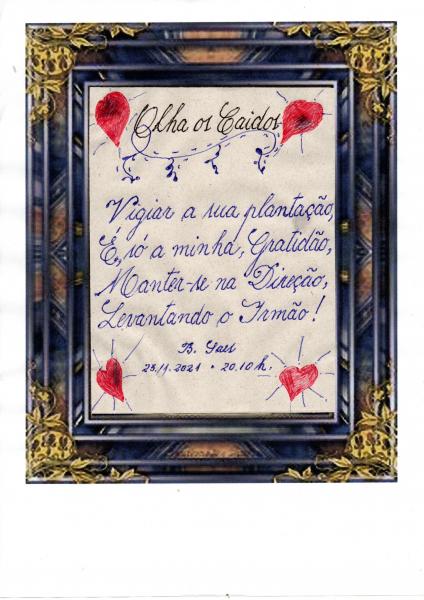 Olha os Caidos
Vigiar a sua plantação,
É, só a minha, Gratidão,
Manter-se na Direção,
Levantando o Irmão!
B. Sales
23.11.2021 • 20.10 h.